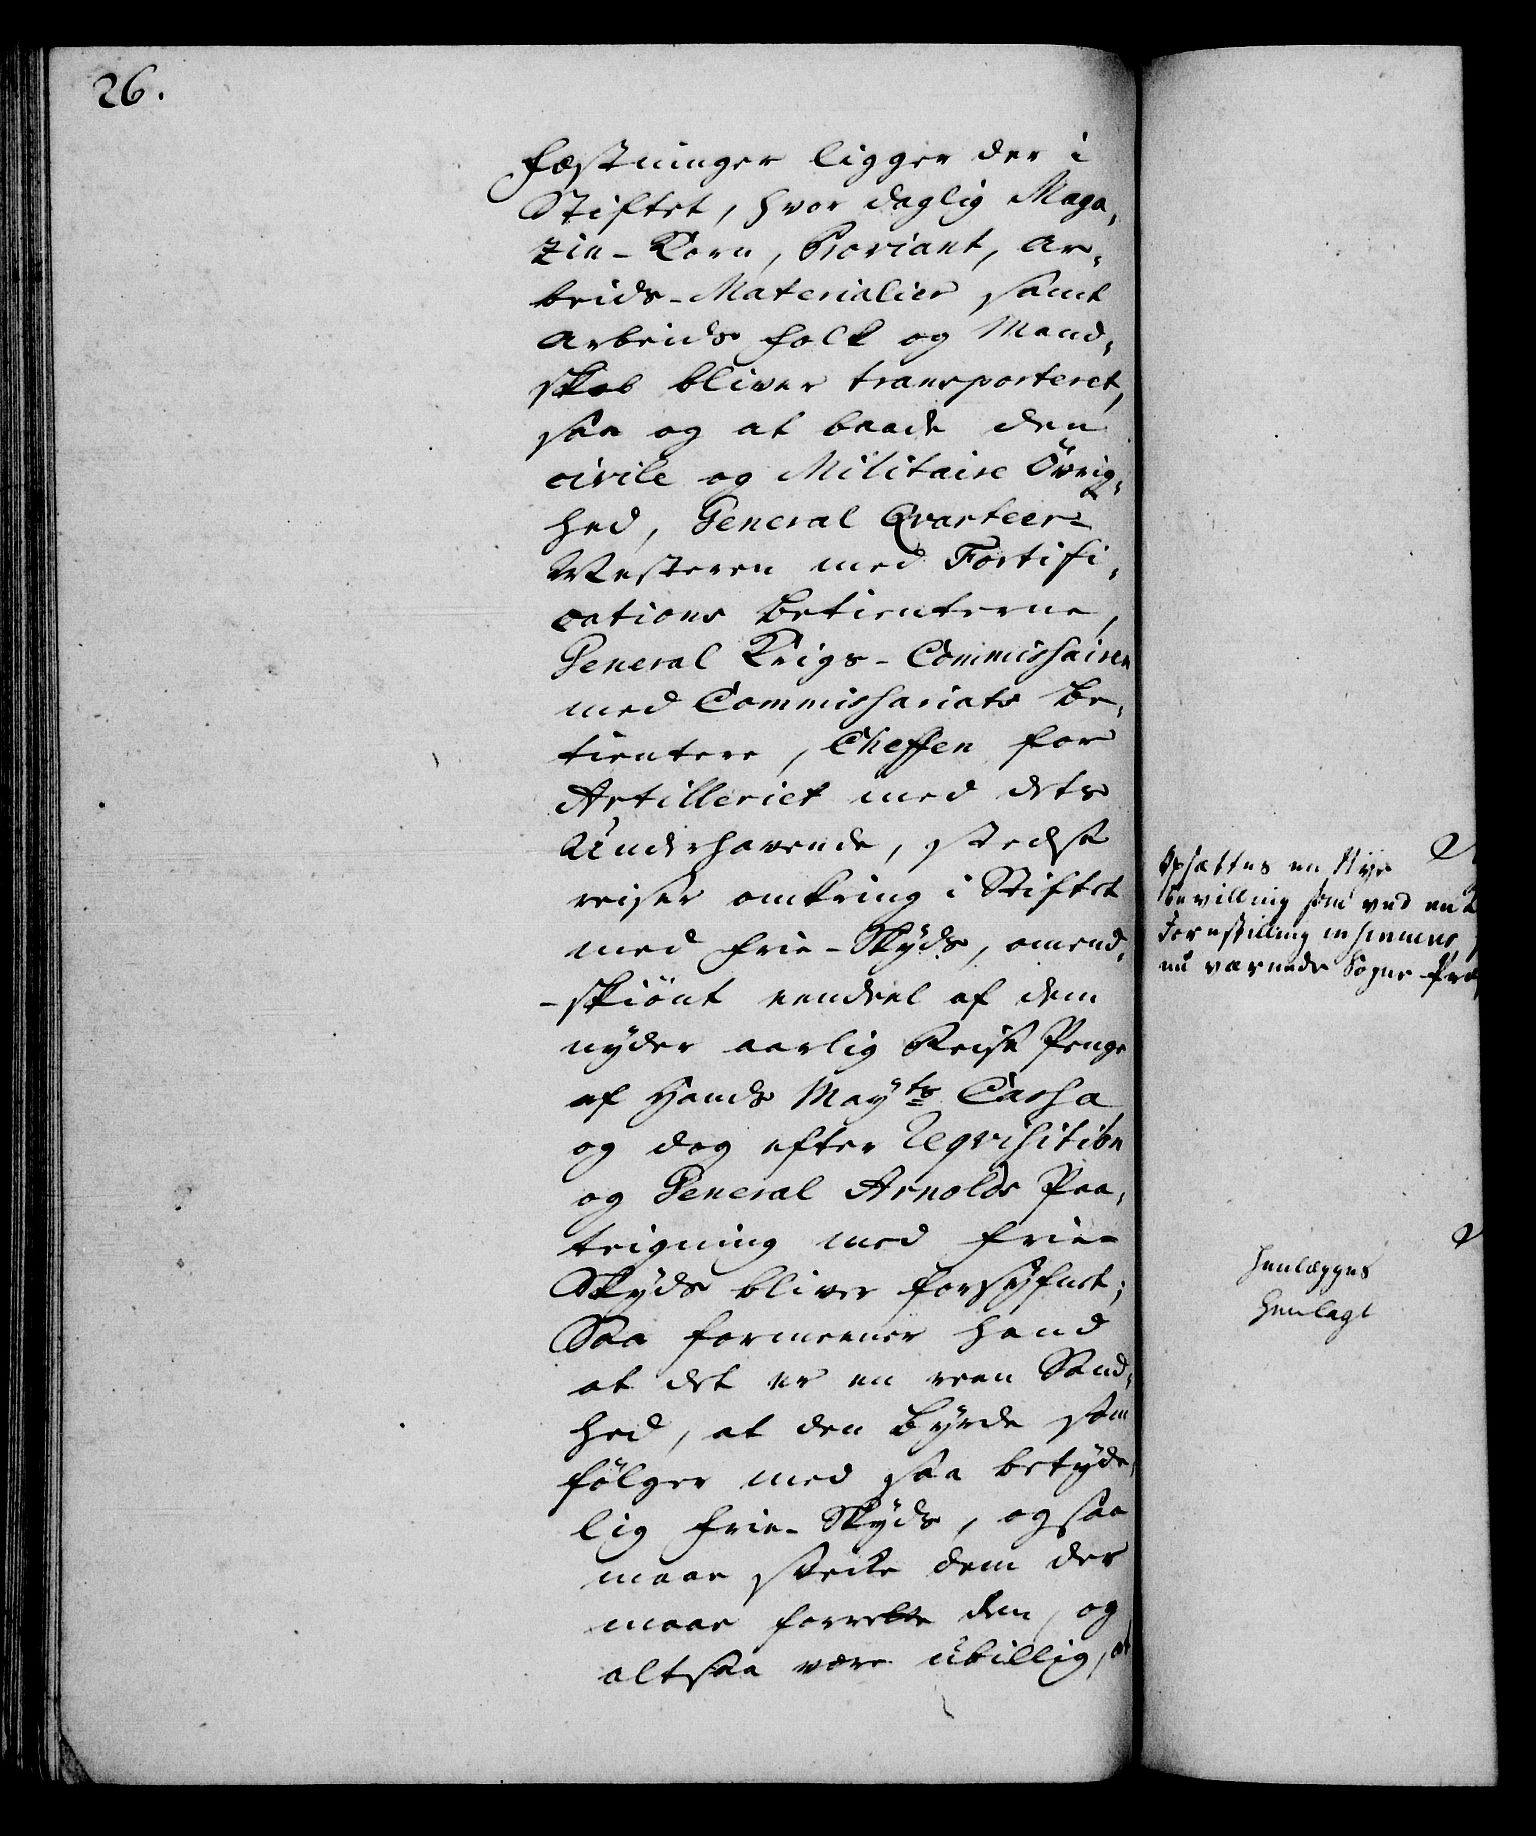 26.
Fæstninger ligger der i
Stiftet, hvor daglig Maga,
zin-Korn, Proviant, Ar,
beids-Materialier samt
Arbeids folk og Mand,
skab bliver transporteret,
saa og at baade den
civile og Militaire Övrig,
hed, General Qvarteer-
Mesteren med Fortifi,
cations Betienterne,
General Krigs-Commissairen
med Commissariats Be,
tientere, Cheffen for
Artilleriet med dets
Underhavende, stedse
reiser omkring i Stiftet
med frie-Skyds, omend,
-skiönt eendeel af dem
nyder aarlig Reise Penge
af Hands Mayts Cassa
og dog efter Reqvisition
og General Arnolds Paa,
teigning med frie-
Skyds bliver forsÿnet;
Saa formeener hand
at det er en reen Sand,
hed, at den Byrde som
fölger med saa betÿde,
lig frie-Skÿds, ogsaa
maae svække dem der
maae forrette den, og
altsaa være übillig, at
Opsættes en Nye
Bevilling som ved en
Forestilling
nu værende Sogne-Præ
Henlægges
Henlagt